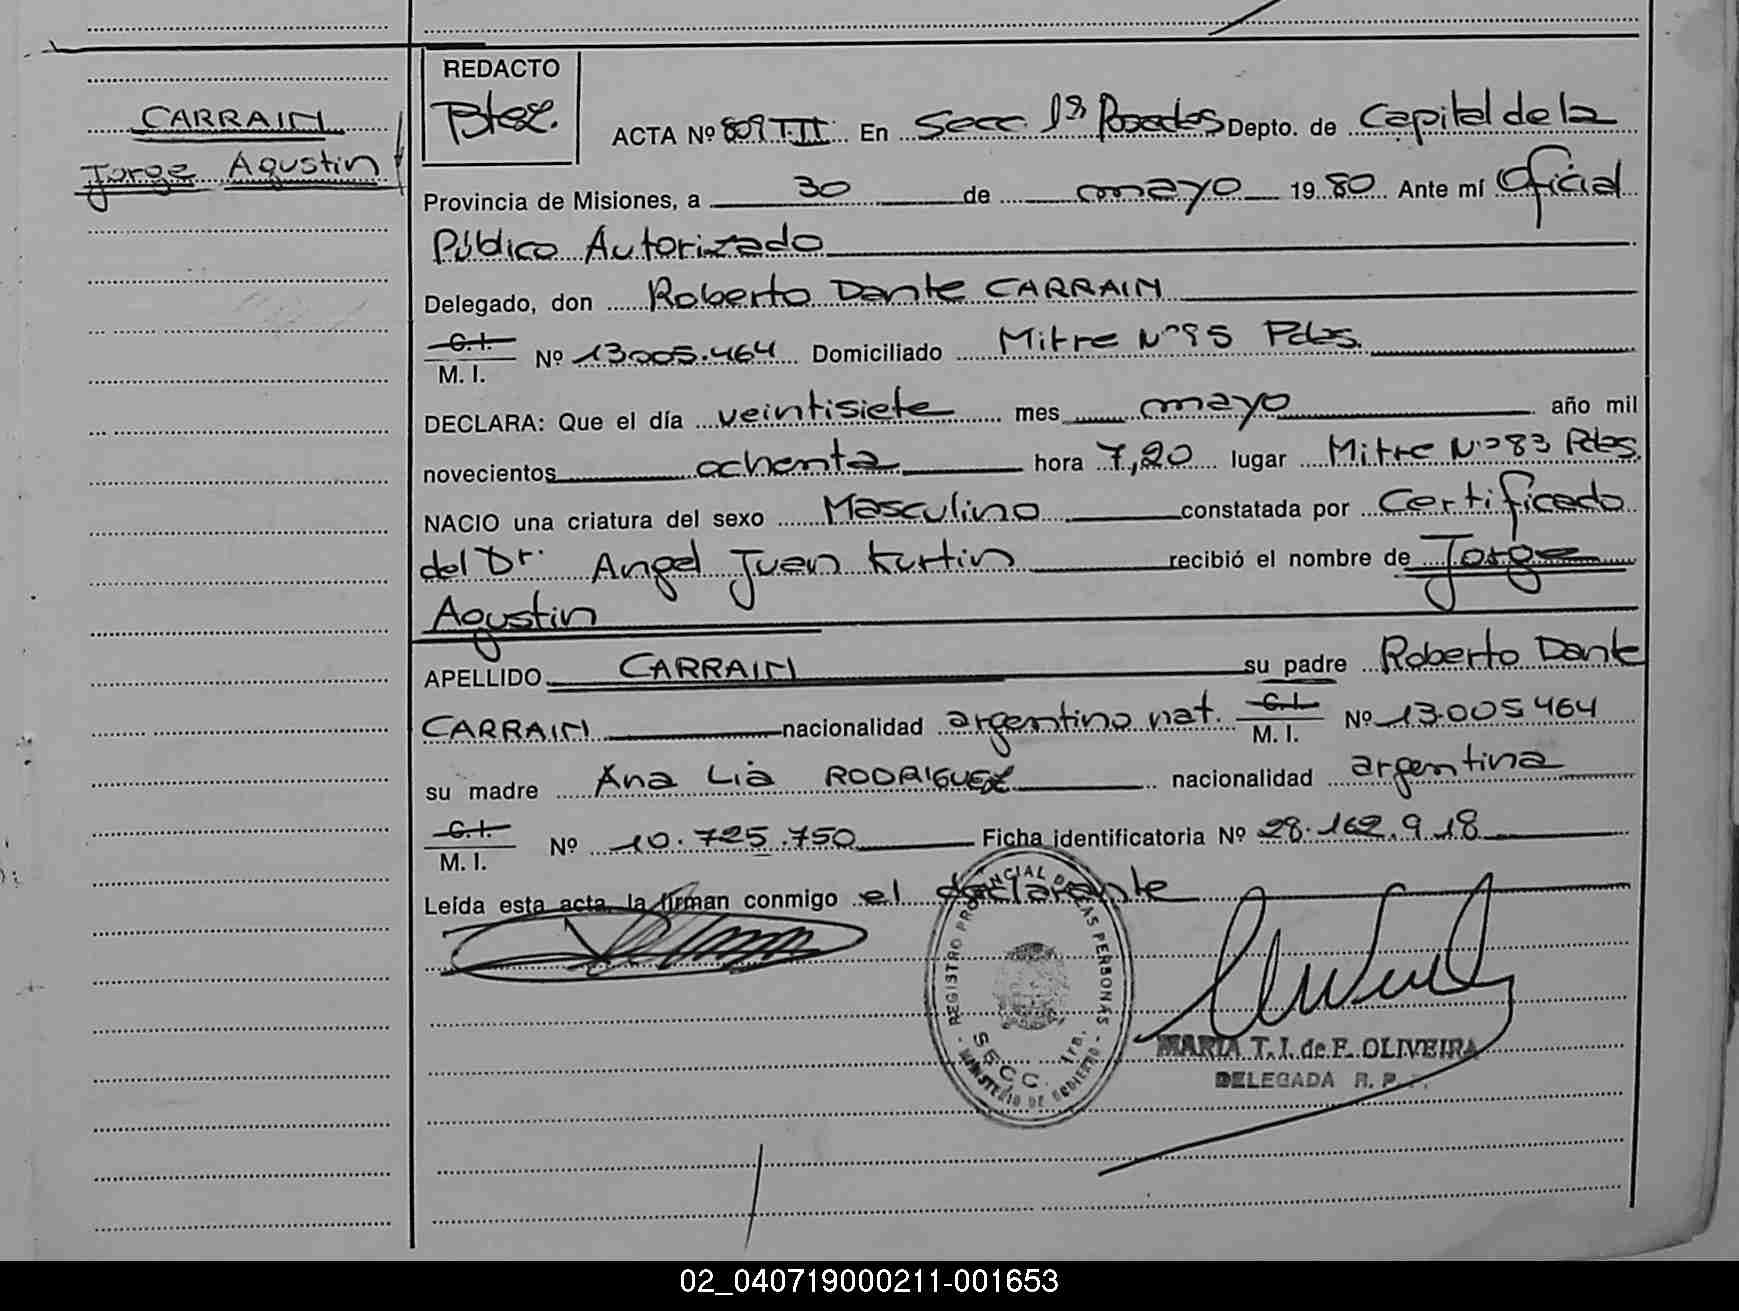 CARRAIN
Jorge Agustin
REDACTO
Btez.
ACTA Nº 809 T.II En Secc. 1ª Posadas Depto. de Capital de la
Provincia de Misiones, a 30 de mayo 1980 Ante mí Oficial
Público Autorizado
Delegado, don Roberto Dante CARRAIN
C.I.
M. I. Nº 13.005.464 Domiciliado Mitre Nº 95 Pdas.
DECLARA: Que el día veintisiete mes mayo año mil
novecientos ochenta hora 7,20 lugar Mitre Nº 83 Pdas.
NACIO una criatura del sexo Masculino constatada por Certificado
del Dr. Angel Juan Kurtin recibió el nombre de Jorge
Agustin
APELLIDO CARRAIN su padre Roberto Dante
CARRAIN nacionalidad argentino nat. C.I. M. I. Nº 13.005464
su madre Ana Lia RODRIGUEZ nacionalidad argentina
C.I.
M. I. Nº 10.725.750 Ficha identificatoria Nº 28.162.918
Leída esta acta, la firman conmigo el declarante
REGISTRO PROVINCIAL DE LAS PERSONAS
SECC. 1ra.
MINISTERIO DE GOBIERNO
MARIA T. I. de F. OLIVEIRA
DELEGADA R. P.
02_040719000211-001653